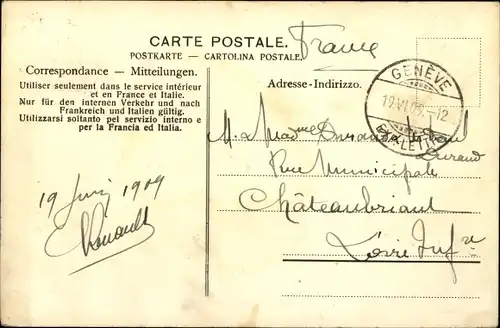 CARTE POSTALE.
France
POSTKARTE — CARTOLINA POSTALE
Correspondance — Mitteilungen.
Adresse-Indirizzo.
Utiliser seulement dans le service intérieur
et en France et Italie.
Nur für den internen Verkehr und nach
Frankreich und Italien gültig.
Utilizzarsi soitanto pel servizio interno e
per la Francia ed Italia.
GENÈVE
19.VI.09.-12
M. & Mme Durand
Durand
Rue Municipale
Châteaubriant
Loire Infre
19 Juin 1909
Renault